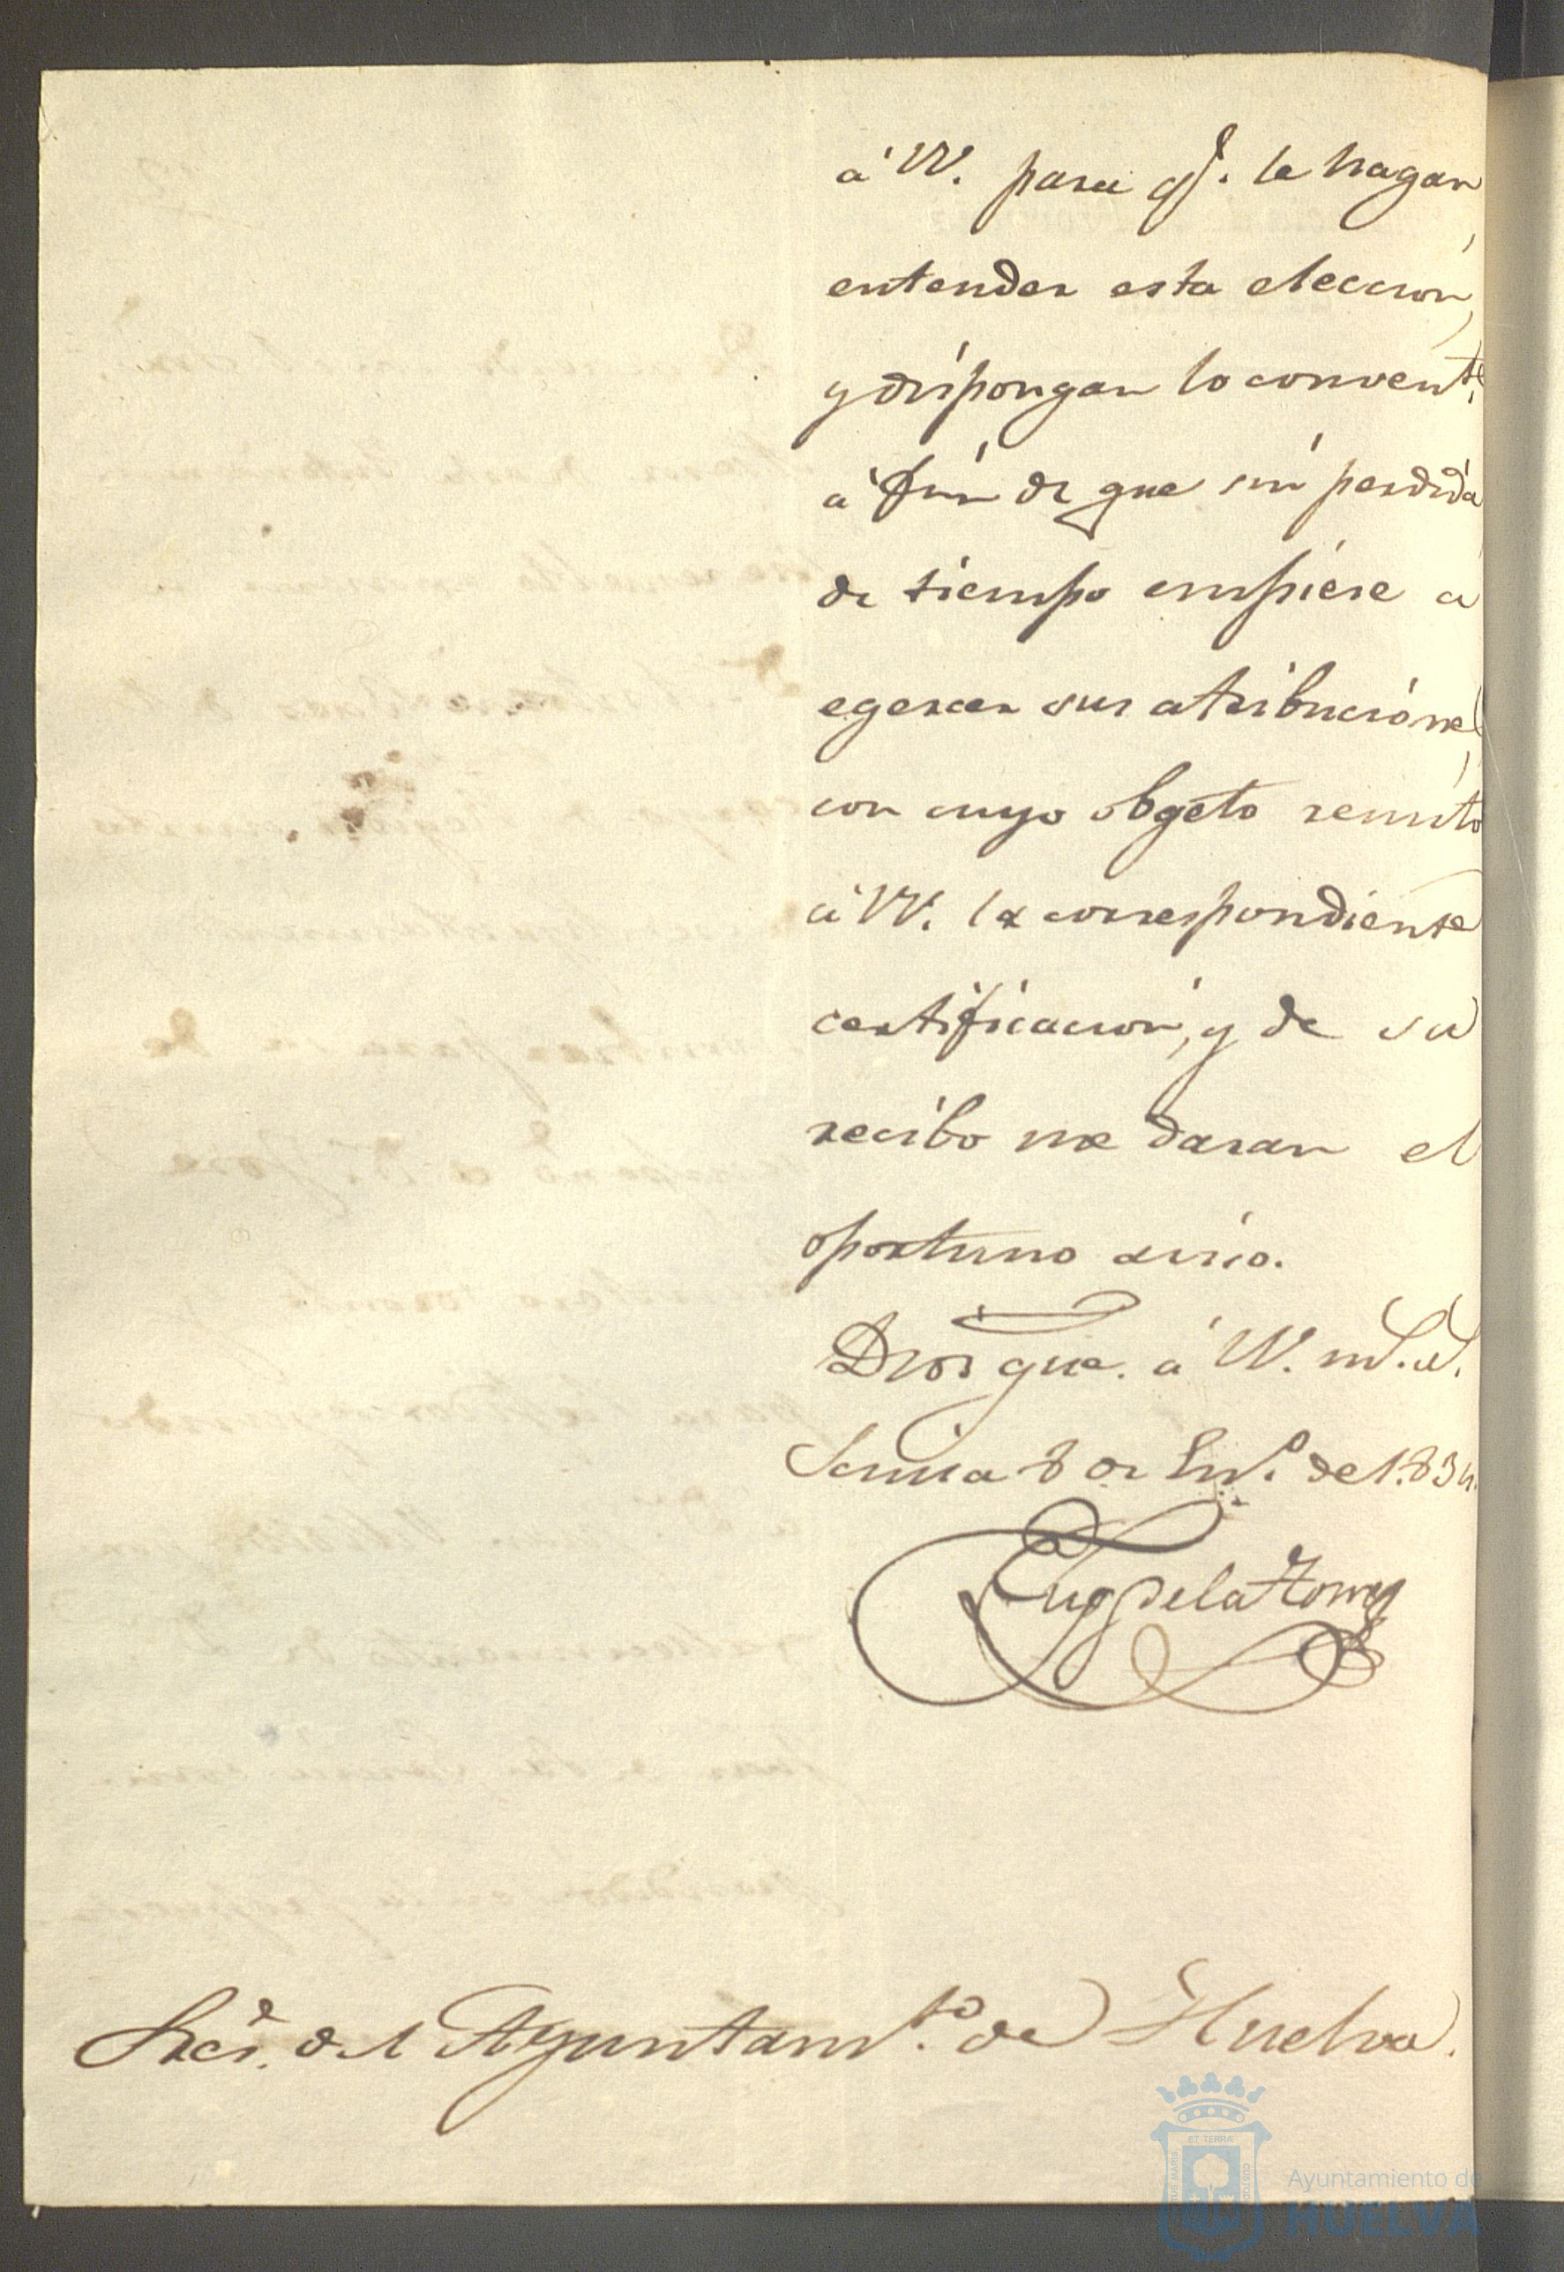 á VV. para qe. le hagan
entender esta eleccion,
y dispongan lo convente.
á fin de que sin perdida
de tiempo empiese a
egercer sus atribuciónes,
con cuyo obgeto remito
á VV. la correspondiente
certificacion, y de su
recibo me daran el
oportuno aviso.
Dios gue. á VV. ms. as.
Sevilla 8 de Eno. de 1.834.
Eugo de la Torre
Sres. del Ayuntamto. de Huelva.
ET TERRÆ
Ayuntamiento de
HUELVA